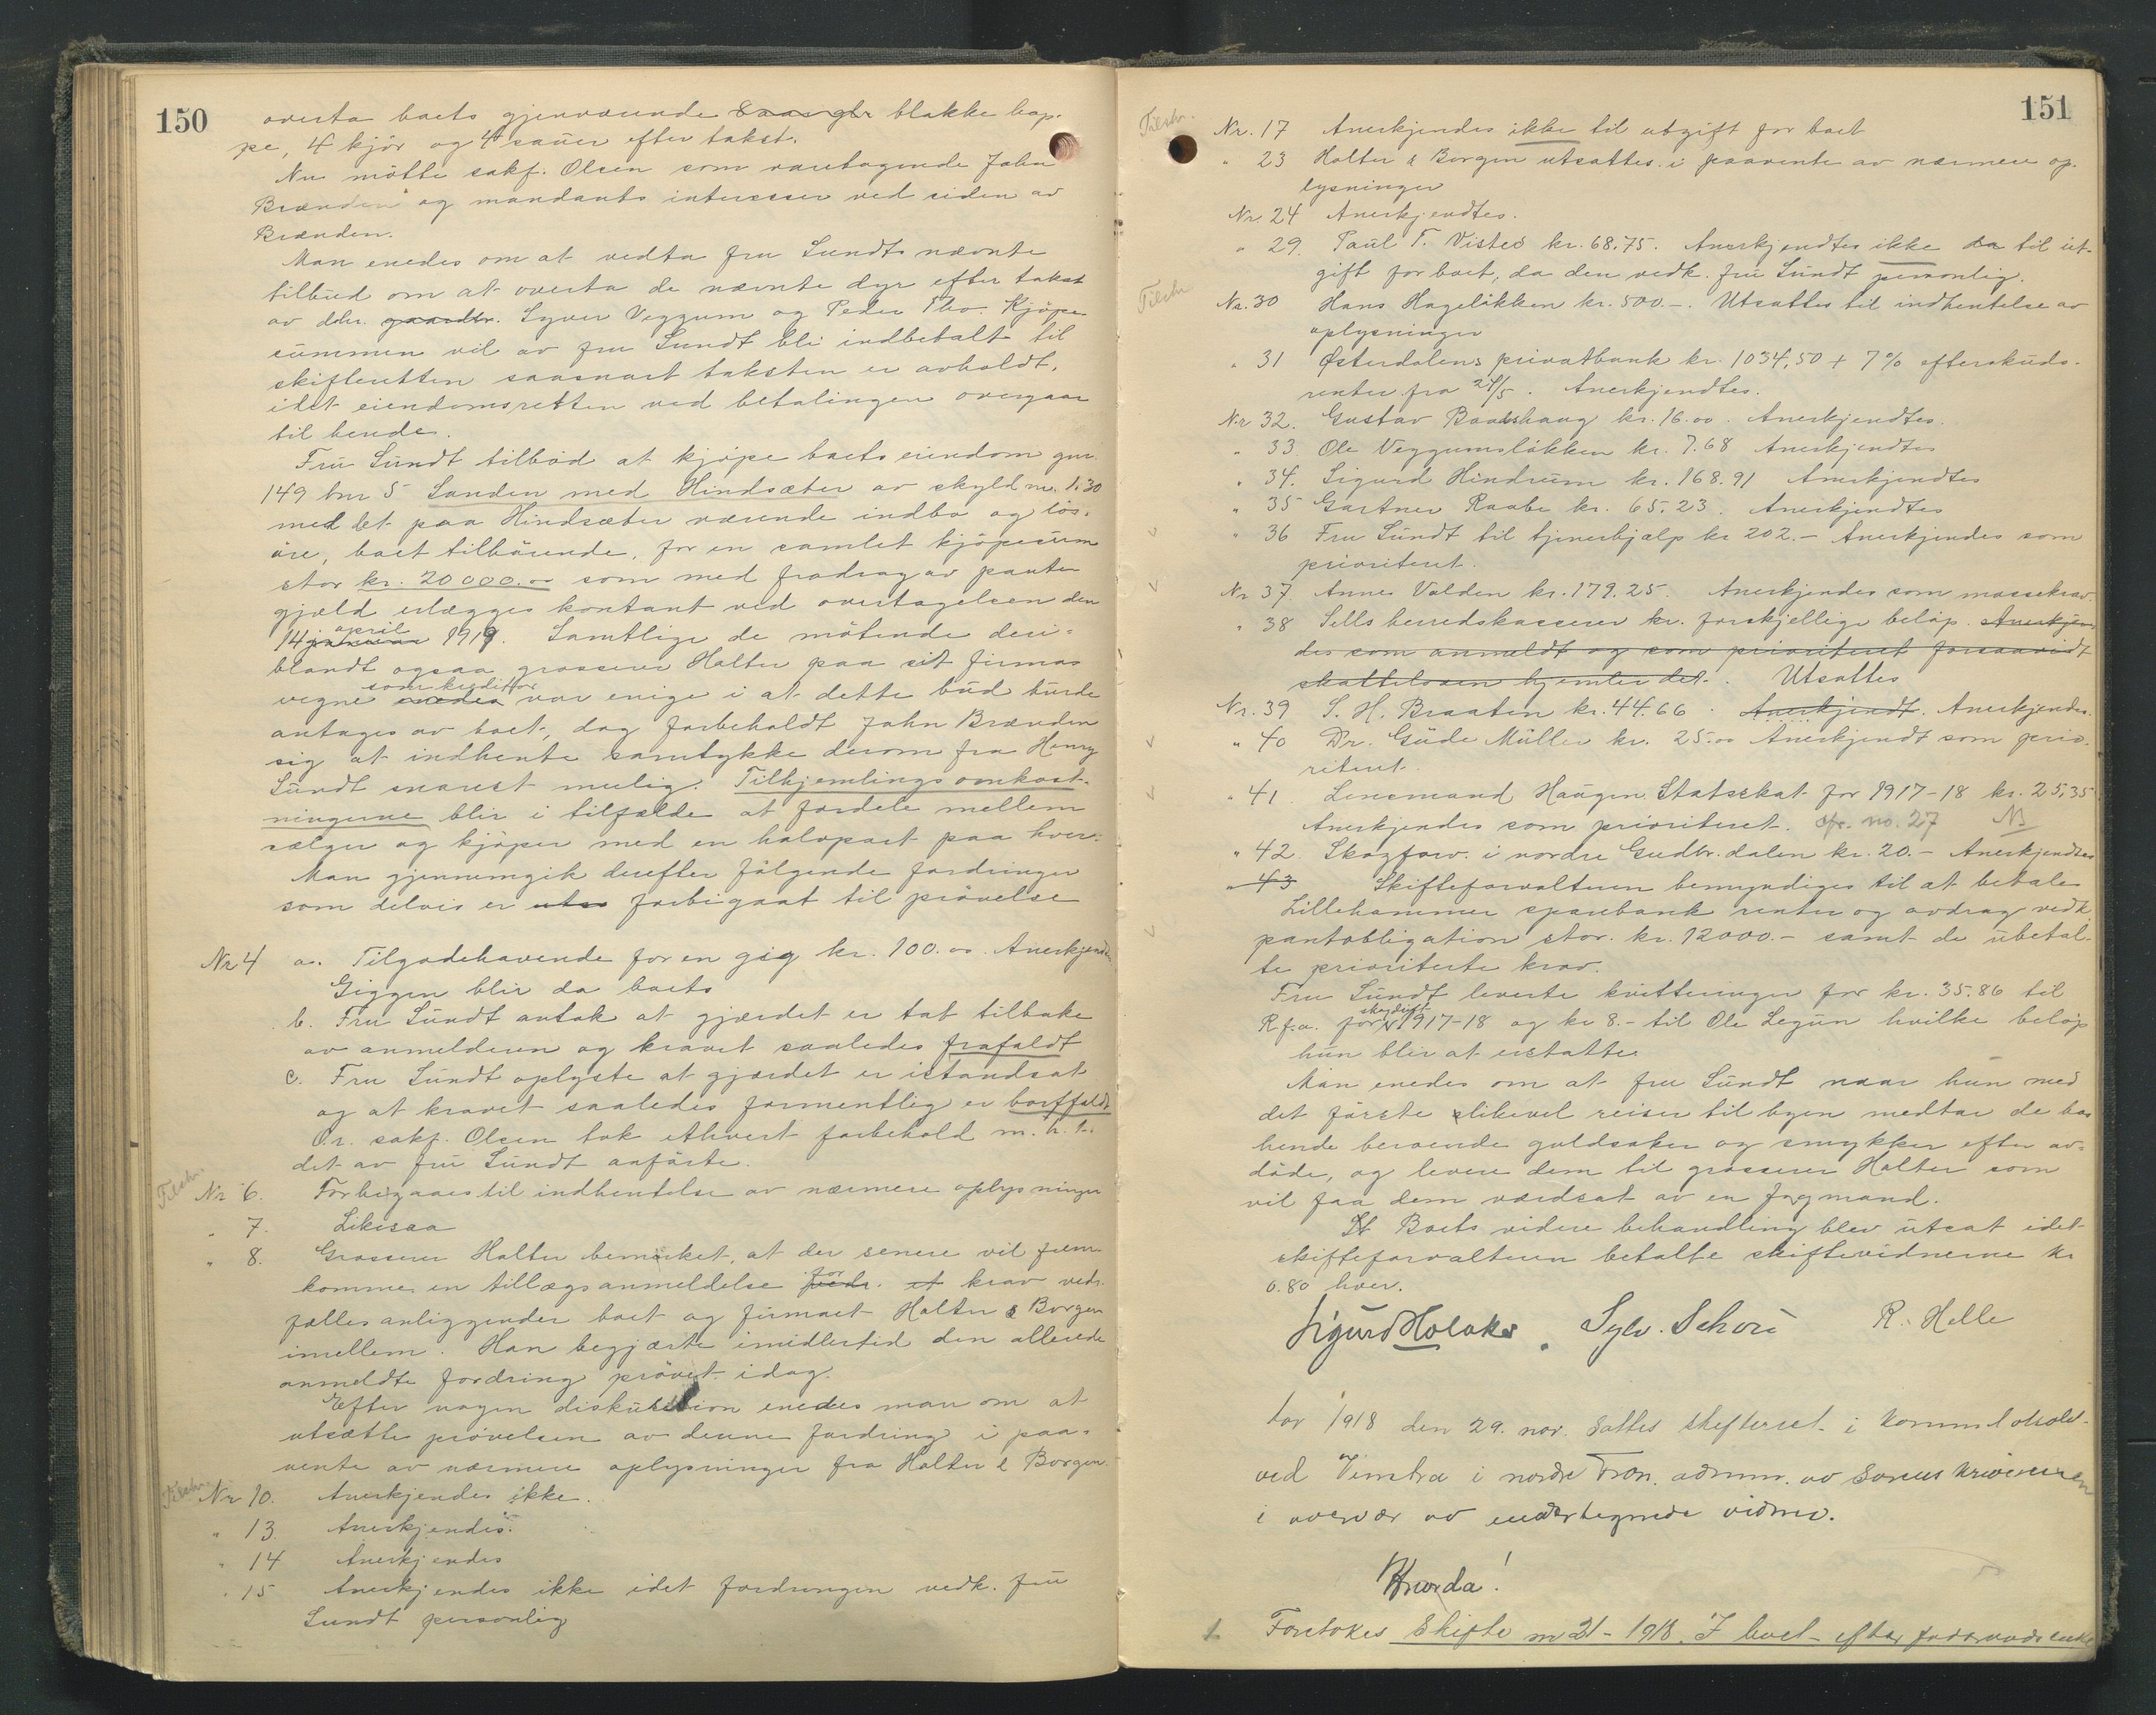 150
overta boets gjenværende blakke hop-
pe, 4 kjör og 4 sauer efter takst.
Nu mötte sakf. Olsen som varetagende John
Brænden og mandants interesser ved siden av
Brænden.
Man enedes om at vedta fru Sundts nævnte
tilbud om at overta de nævnte dyr efter takst
av dhr. gaardbr. Syver Veggum og Peder Tho. Kjöpe-
summen vil av fru Sundt bli indbetalt til
skifteretten saasnart taksten er avholdt,
idet eiendomsretten ved betalingen overgaar
til hende.
Fru Sundt tilböd at kjöpe boets eiendom gnr.
149 bnr 5 Sanden med Hindsæter av skyld m. 1.30
med det paa Hindsæter værende indbo og lös-
öre, boet tilhörende, for en samlet kjöpesum
stor kr. 20000.00 som med fradrag av pante-
gjæld erlægges kontant ved overtagelsen den
14 januar april 1919. Samtlige de mötende deri-
blandt ogsaa grosserer Halter paa sit firmas
vegne enedes som kreditor var enige i at dette bud burde
antages av boet, dog forbeholdt John Brænden
sig at indhente samtykke derom fra Henry
Sundt snarest mulig. Tilhjemlingsomkost-
ningerne blir i tilfælde at fordele mellem
sælger og kjöper med en halvpart paa hver.
Man gjennemgik derefter fölgende fordringer
som delvis er utsa forbigaat til prövelse
Nr 4 a. Tilgodehavende for en gig kr. 100.00. Anerkjendes
Giggen blir da boets
b. Fru Sundt antok at gjærdet er tat tilbake
av anmelderen og kravet saaledes frafaldt
c. Fru Sundt oplyste at gjærdet er istandsat
og at kravet saaledes formentlig er bortfaldt
O.r. sakf. Olsen tok ethvert forbehold m. h. t.
det av fru Sundt anförte.
Tilskr. Nr 6. Forbigaaes til indhentelse av nærmere oplysninger
" 7. Likesaa
" 8. Grosserer Halter bemerket, at der senere vil frem-
komme en tillægsanmeldelse vedr. for et krav vedr.
fælles anliggender boet og firmaet Halter & Borgen
imellem. Han begjærte imidlertid den allerede
anmeldte fordring prövet idag.
Efter nogen diskussion enedes man om at
utsætte prövelsen av denne fordring i paa-
vente av nærmere oplysninger fra Halter & Borgen.
Tilskr. Nr 10. Anerkjendes ikke.
" 13. Anerkjendes.
" 14 Anerkjendes
" 15 Anerkjendes ikke idet fordringen vedk. fru
Sundt personlig
151
Tilskr. Nr. 17 Anerkjendes ikke til utgift for boet
" 23 Halter & Borgen utsattes i paavente av nærmere op-
lysninger
Nr. 24 Anerkjendtes.
" 29. Paul T. Visted kr. 68.75. Anerkjendtes ikke da til ut-
gift for boet, da den vedk. fru Sundt personlig.
Tilskr Nr. 30 Hans Hagelökken kr. 500.-. Utsattes til indhentelse av
oplysninger
" 31 Østerdalens privatbank kr. 1034,50 + 7% efterskuds-
renter fra 24/5. Anerkjendtes.
Nr 32. Gustav Baukhaug kr. 16.00. Anerkjendtes.
" 33. Ole Veggumslökken kr. 7.68 Anerkjendtes
" 34. Sigurd Hindrum kr. 168.91 Anerkjendtes
" 35 Gartner Raabe kr. 65.23. Anerkjendtes
" 36 Fru Sundt til tjenerhjælp kr 202.- Anerkjendes som
prioritert.
Nr 37. Anne Volden kr. 179.25. Anerkjendes som massekrav.
" 38 Sells herredskasserer kr. forskjellige belöp. Anerkjen-
des som anmeldt og som prioritert forsaavidt
skatteloven hjemler det. Utsattes
Nr. 39 S. H. Braaten kr. 44.66. Anerkjendt. Anerkjendes.
" 40 Dr. Gude Müller kr. 25.00 Anerkjendt som prio-
ritert.
" 41 Lensmand Haugen. Statsskat for 1917-18 kr. 25.35
Anerkjendes som prioritert. cfr. no. 27 NB
" 42. Skogforv. i nordre Gudbr.dalen kr. 20.- Anerkjendtes
" 43 Skifteforvalteren bemyndiges til at betale
Lillehammer sparebank renter og avdrag vedk.
pantobligation stor kr. 12000.- samt de ubetal-
te prioriterte krav.
Fru Sundt leverte kvitteringer for kr. 35.86 til
R.f.a. for 1917-18 og kr 8.- til Ole Legun hvilke belöp
hun blir at erstatte.
Man enedes om at fru Sundt naar hun med
det förste likevel reiser til byen medtar de hos
hende beroende guldsaker og smykker efter av-
döde, og levere dem til grosserer Halter som
vil faa dem værdsat av en fagmand.
Boets videre behandling blev utsat idet
skifteforvalteren betalte skiftevidnerne kr
0.80 hver.
Sigurd Holaker. Sylv. Schou R. Helle
Aar 1918 den 29. nov. sattes skifteret i
ved Vinstra i nordre Fron. adm. av Sorenskriveren
i overvær av undertegnede vidner.
Hvorda!
1. Foretokes Skifte nr 21-1918. I boet efter